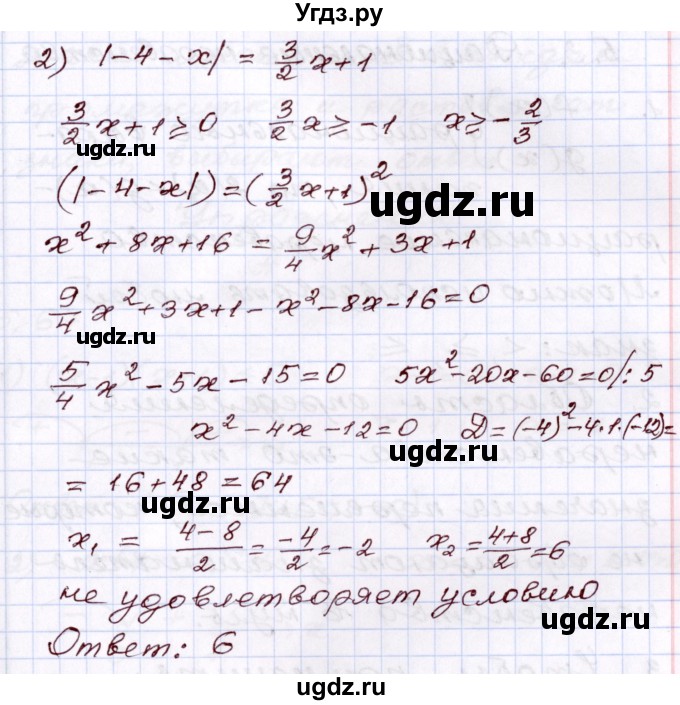 Угдз.ру
2) |-4-x| = 3/2 x+1
3/2 x+1 ≥ 0   3/2 x ≥ -1   x ≥ -2/3
ugdz.ru
ugdz.ru
(|-4-x|) = (3/2 x+1)^2
x^2+8x+16 = 9/4 x^2+3x+1
ugdz.ru
9/4 x^2+3x+1-x^2-8x-16=0
ugdz.ru
5/4 x^2-5x-15=0   5x^2-20x-60=0/:5
x^2-4x-12=0   D=(-4)^2-4·1·(-12)=
ugdz.ru
ugdz.ru
= 16+48 = 64
x₁ = (4-8)/2 = -4/2 = -2   x₂ = (4+8)/2 = 6
не удовлетворяет условию
ugdz.ru
Ответ: 6
ugdz.ru
ugdz.ru